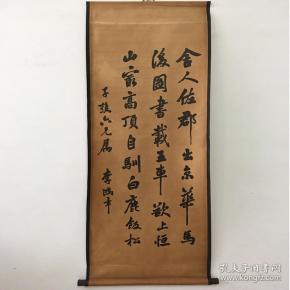 舍人佐郡出京華馬
後圖書載五車欲上恒
山窮高頂自馴白鹿飯松
李鴻章
孔夫子旧书网